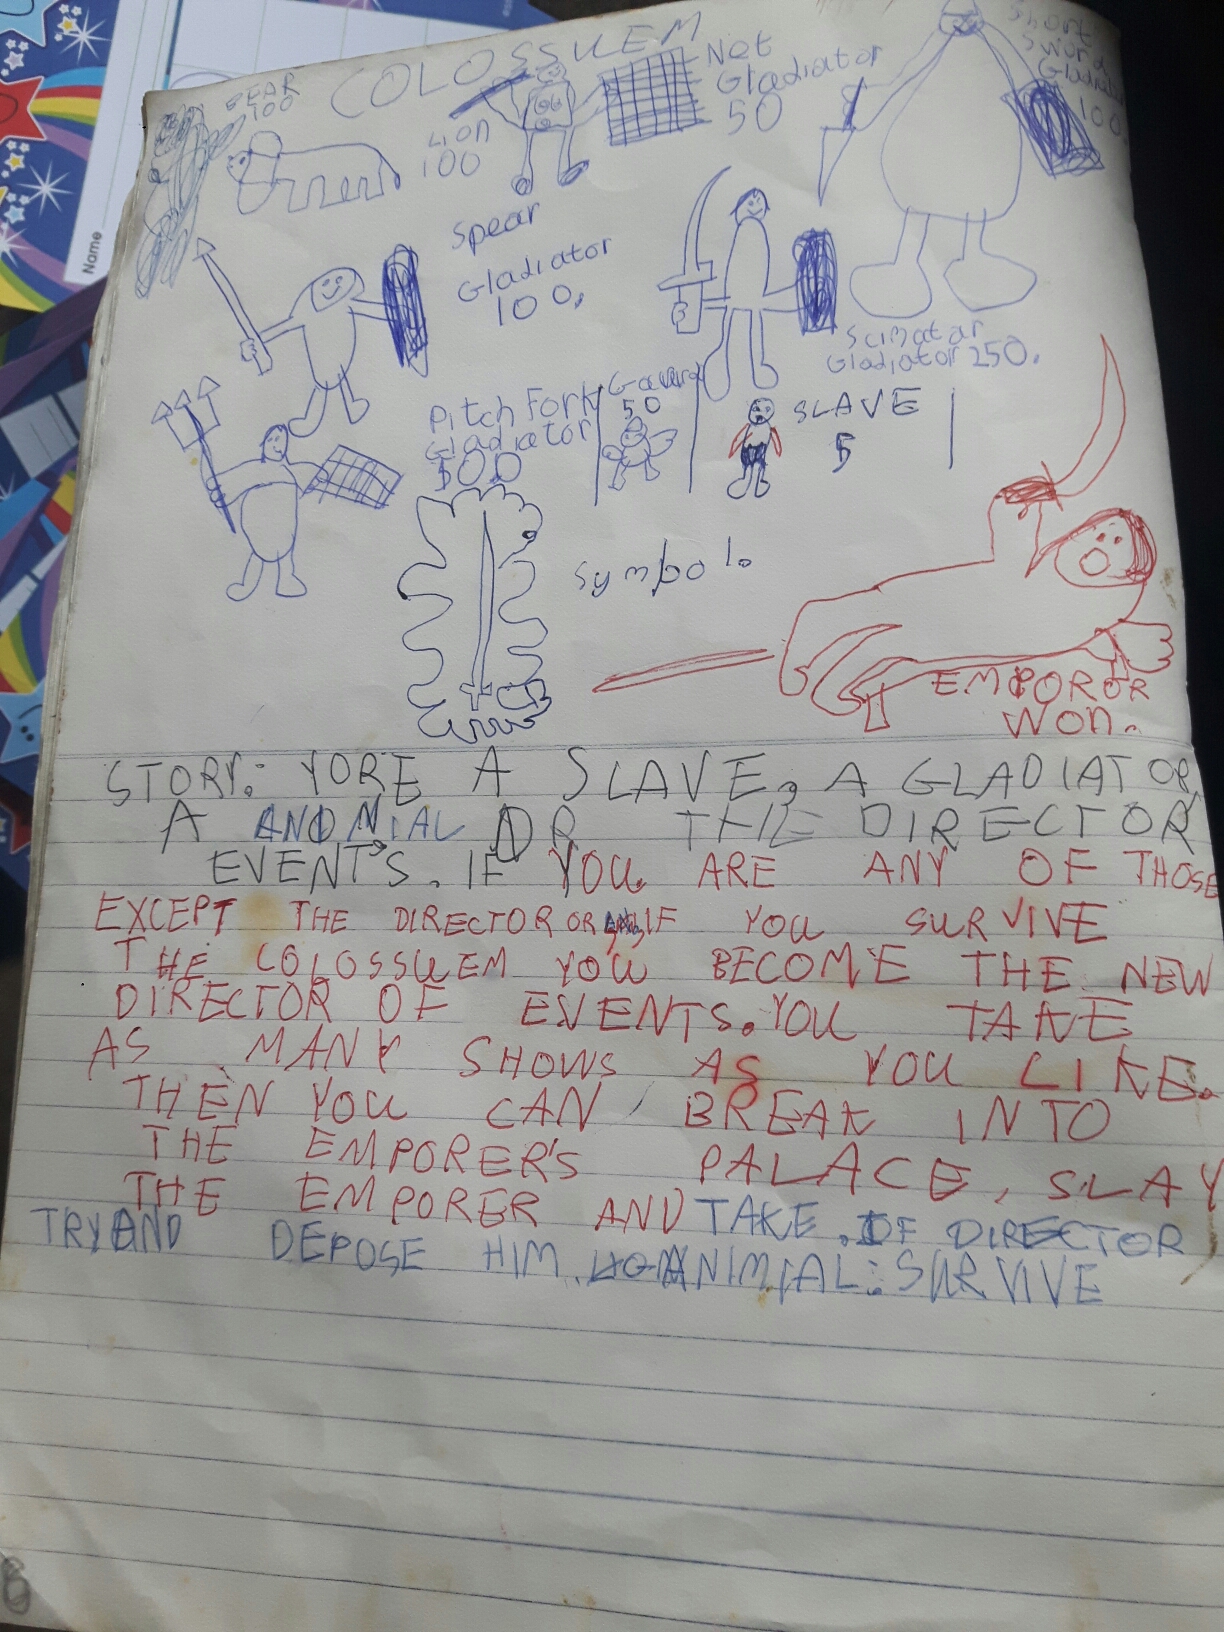 COLOSSUEM
BEAR
100
Lion
100
Net
Gladiator
50
Short
Sword
Gladiator
100.
Spear
Gladiator
100.
Scimatar
Gladiator 250.
Pitch Fork
Gladiator
500
50
SLAVE
5
Symbol.
EMPOROR
WON.
STORY: YORE A SLAVE, A GLADIATOR,
A ANOMIAL OR THE DIRECTOR
EVENT'S. IF YOU ARE ANY OF THOSE
EXCEPT THE DIRECTOR OR IF YOU SURVIVE
THE COLOSSUEM YOU BECOME THE NEW
DIRECTOR OF EVENTS. YOU TAKE
AS MANY SHOWS AS YOU LIKE.
THEN YOU CAN BREAK INTO
THE EMPORER'S PALACE, SLAY
THE EMPORER AND TAKE. IF DIRECTOR
TRY AND DEPOSE HIM. ANIMIAL: SURVIVE
Name